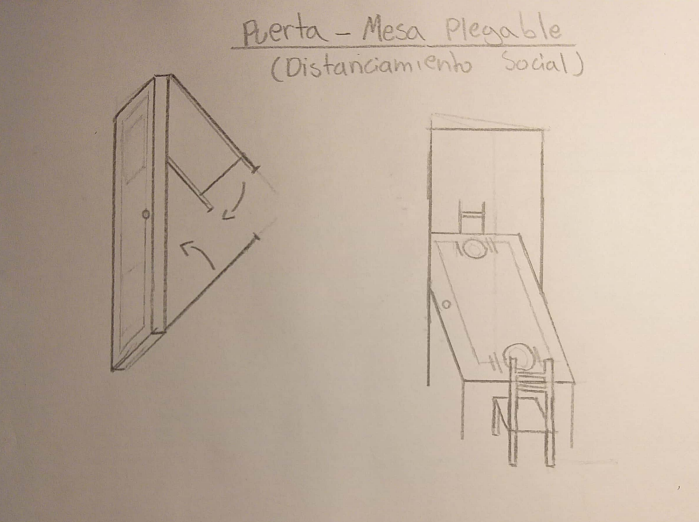 Puerta - Mesa Plegable
(Distanciamiento Social)